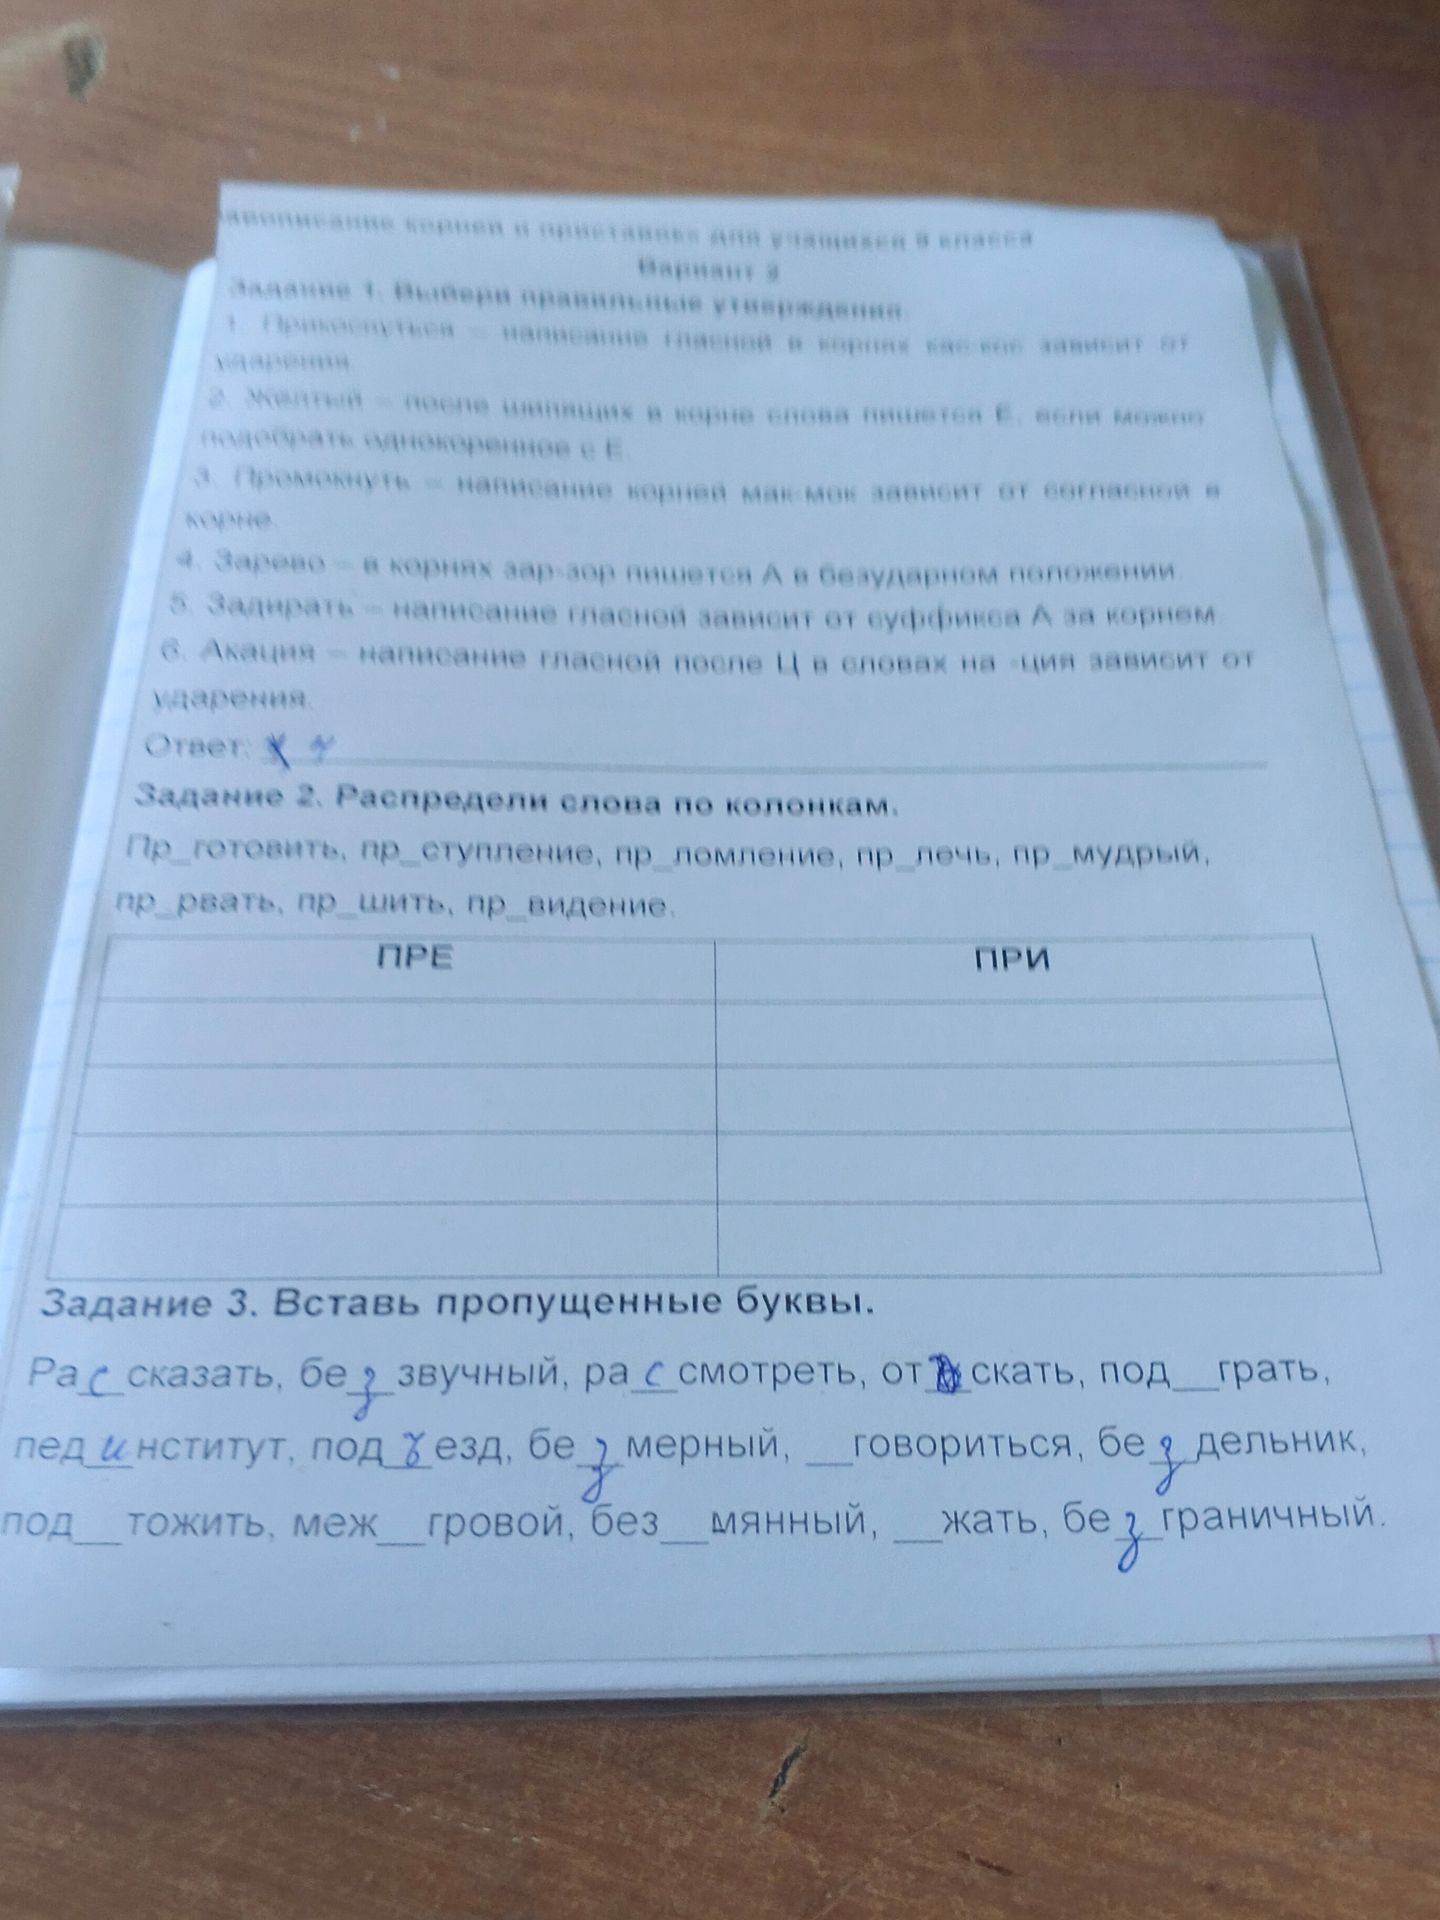 авописание корней и приставок для учащихся 6 класса
Вариант 3
Задание 1. Выбери правильные утверждения.
1. Прикоснуться – написание гласной в корнях кас-кос зависит от
ударения.
2. Желтый – после шипящих в корне слова пишется Е, если можно
подобрать однокоренное с Е.
3. Промокнуть – написание корней мак-мок зависит от согласной в
корне.
4. Зарево – в корнях зар-зор пишется А в безударном положении.
5. Задирать – написание гласной зависит от суффикса А за корнем.
6. Акация – написание гласной после Ц в словах на -ция зависит от
ударения.
Ответ:
Задание 2. Распредели слова по колонкам.
Пр_готовить, пр_ступление, пр_ломление, пр_лечь, пр_мудрый,
пр_рвать, пр_шить, пр_видение.
ПРЕ ПРИ
Задание 3. Вставь пропущенные буквы.
Ра_с_сказать, бе_з_звучный, ра_с_смотреть, от__скать, под__грать,
пед_и_нститут, под_ъ_езд, бе_з_мерный, __говориться, бе_з_дельник,
под__тожить, меж__гровой, без__мянный, __жать, бе_з_граничный.